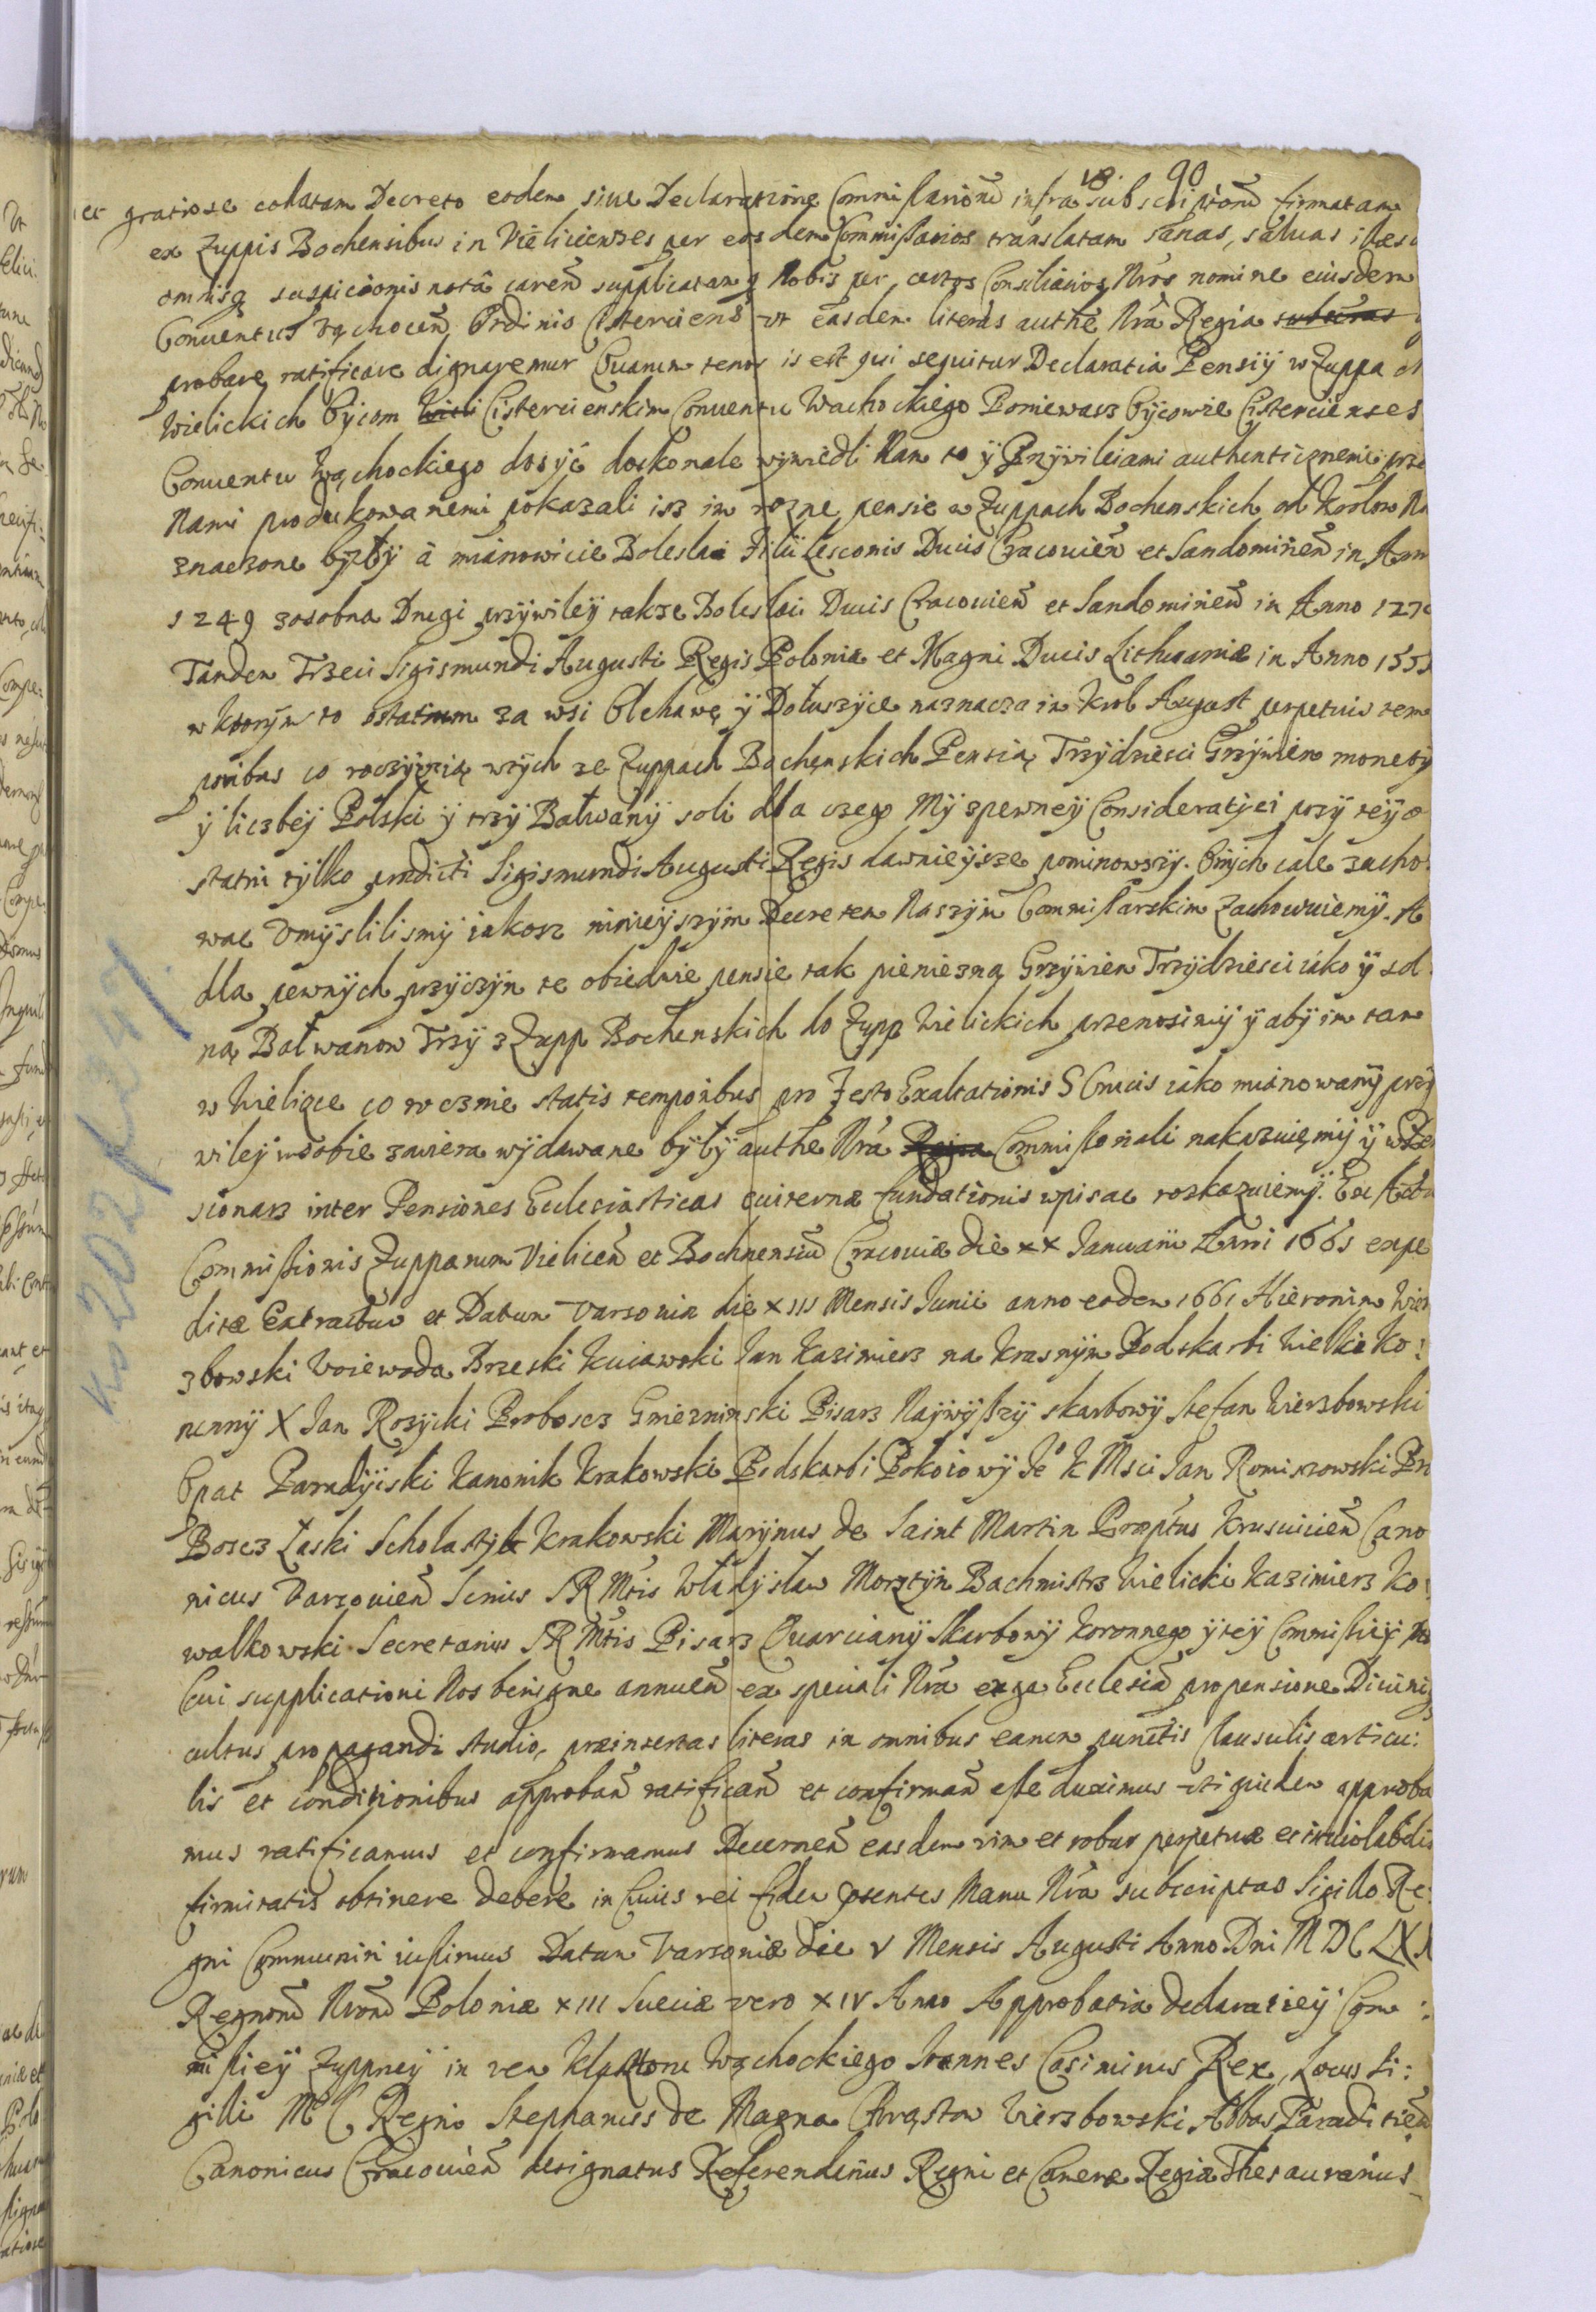 18. 90
et gratiose collatam Decreto eodem siue Declaratione Commissarioru infra subscriptoru firmatam
ex Zuppis Bochensibus in Vielicienses per eosdem Commissarios translatam sanas, saluas illaes
omnisq suspicionis nota careñ supplicatumq Nobis per certos Consiliarios Nros nomine eiusdem
Conuentus Wąchoceñ Ordinis Cisterciens vt easdem literas authe Nra Regia
probare, ratificare dignaremur Quarum tenor is est qui sequitur Declaratia Pensiÿ w Zuppa
Wielickich Oÿcom Cistercienskim Conuentu Wachockiego Poniewasz Oÿcowie Cistercienses
Conuentu Wąchockiego dosÿć doskonale wÿwiedli Nam to ÿ Przÿwileiami authenticznemi prze
Nami produkowanemi pokazali isz im rozne pensie w Zuppach Bochenskich od Krolow Na
znaczone bÿłÿ à mianowicie Boleslai Filii Lesconis Ducis Cracouieñ et Sandomirieñ in Ann
1249 zosobna Drugi przÿwileÿ takze Boleslai Ducis Cracouieñ et Sandomirieñ in Anno 127
Tandem Trzeci Sigismundi Augusti Regis Poloniæ et Magni Ducis Lithuaniæ in Anno 155
w ktorÿm to ostatnim za wsi Olchawę ÿ Dołuszÿce naznacza im Krol August perpetuis tem
poribus co rocznÿch ze Zuppach Bochenskich Pensią Trzÿdziesci Grzÿwien monetÿ
ÿ liczbeÿ Polski ÿ trzÿ Bałwanÿ soli dla czego Mÿ zpewneÿ Consideratÿei przÿ teÿ o
statni tÿlko prædicti Sigismundi Augusti Regis dawnieÿsze pominowszÿ. Onÿch cale zacho
wac vmÿslilismÿ iakosz ninieÿszÿm Decretem Naszÿm Commissarskim zachowuiemÿ. A
dla pewnÿch przÿczÿn te obiedwie pensie tak pieniezną Grzÿwien Trzÿdziesci iako ÿ sol
ną Bałwanow Trzÿ z Zupp Bochenskich do Zupp Wielickich przenosimÿ ÿ abÿ im tam
w Wieliczce co rocznie statis temporibus pro Festo Exaltationis S Crucis iako mianowanÿ przÿ
wileÿ wsobie zawiera wÿdawane bÿłÿ authe Nra Commissoriali nakazuiemÿ ÿ w Pen
sionarz inter Pensiones Ecclesiasticas æuiternæ fundationis wpisac rozkazuiemÿ. Ex Actu
Commissionis Zupparum Vieliceñ et Bochnensiu Cracouiæ die xx Januarii Anni 1661 expe
ditæ Extractum et Datum Varsoviæ die xiii Mensis Junii anno eodem 1661 Hieronim Wier
zbowski Woiewoda Brzeski Kuiawski Jan Kazimierz na Krasnÿm Podskarbi Wielki Ko:
ronnÿ X Jan Rozÿcki Probosz Gnieznienski Pisarz Naÿwÿszÿ skarbowÿ Stefan Wierzbowski
Opat Paradÿiski Kanonik Krakowski Podskarbi Pokoiowÿ Je° K Msci Jan Romiszowski Pro
Bosz Łaski Scholastÿk Krakowski Marÿnus de Saint Martin Præptus Krusuicieñ Cano
nicus Varsouieñ Seruus S R Mtis Władÿsław Morsztÿn Bachmistrz Wielicki Kazimierz Ko:
walkowski Secretarius S R Mtis Pisarz Quarcianÿ Skarbowÿ Koronnego ÿ teÿ Commissieÿ
Cui supplicationi Nos benigne annueñ ex speciali Nra erga Ecclesia propensione Diuiniq
cultus propagandi studio, præinsertas literas in omnibus earum punctis clausulis articu:
lis et conditionibus approbañ ratificañ et confirmañ esse duximus vti quidem approba
mus ratificamus et confirmamus Decerneñ easdem vim et robur perpetuæ et inuiolabilis
firmitatis obtinere debere in Cuius rei fidem præsentes Manu Nra subscriptas Sigillo Re:
gni Communiri iussimus Datum Varsoviæ die V Mensis Augusti Anno Dni M D C LX I
Regnoru Nroru Poloniæ xiii Sueciæ vero xiv Anno Approbatia declaratieÿ Com:
missieÿ Zuppneÿ in rem Klasztoru Wąchockiego Joannes Casimirus Rex, Locus Si:
gilli M C Regni Stephanus de Magna Chrząstow Wierzbowski Abbas Paraditieñ
Canonicus Cracouieñ designatus Referendarius Regni et Cameræ Regiæ Thesaurarius